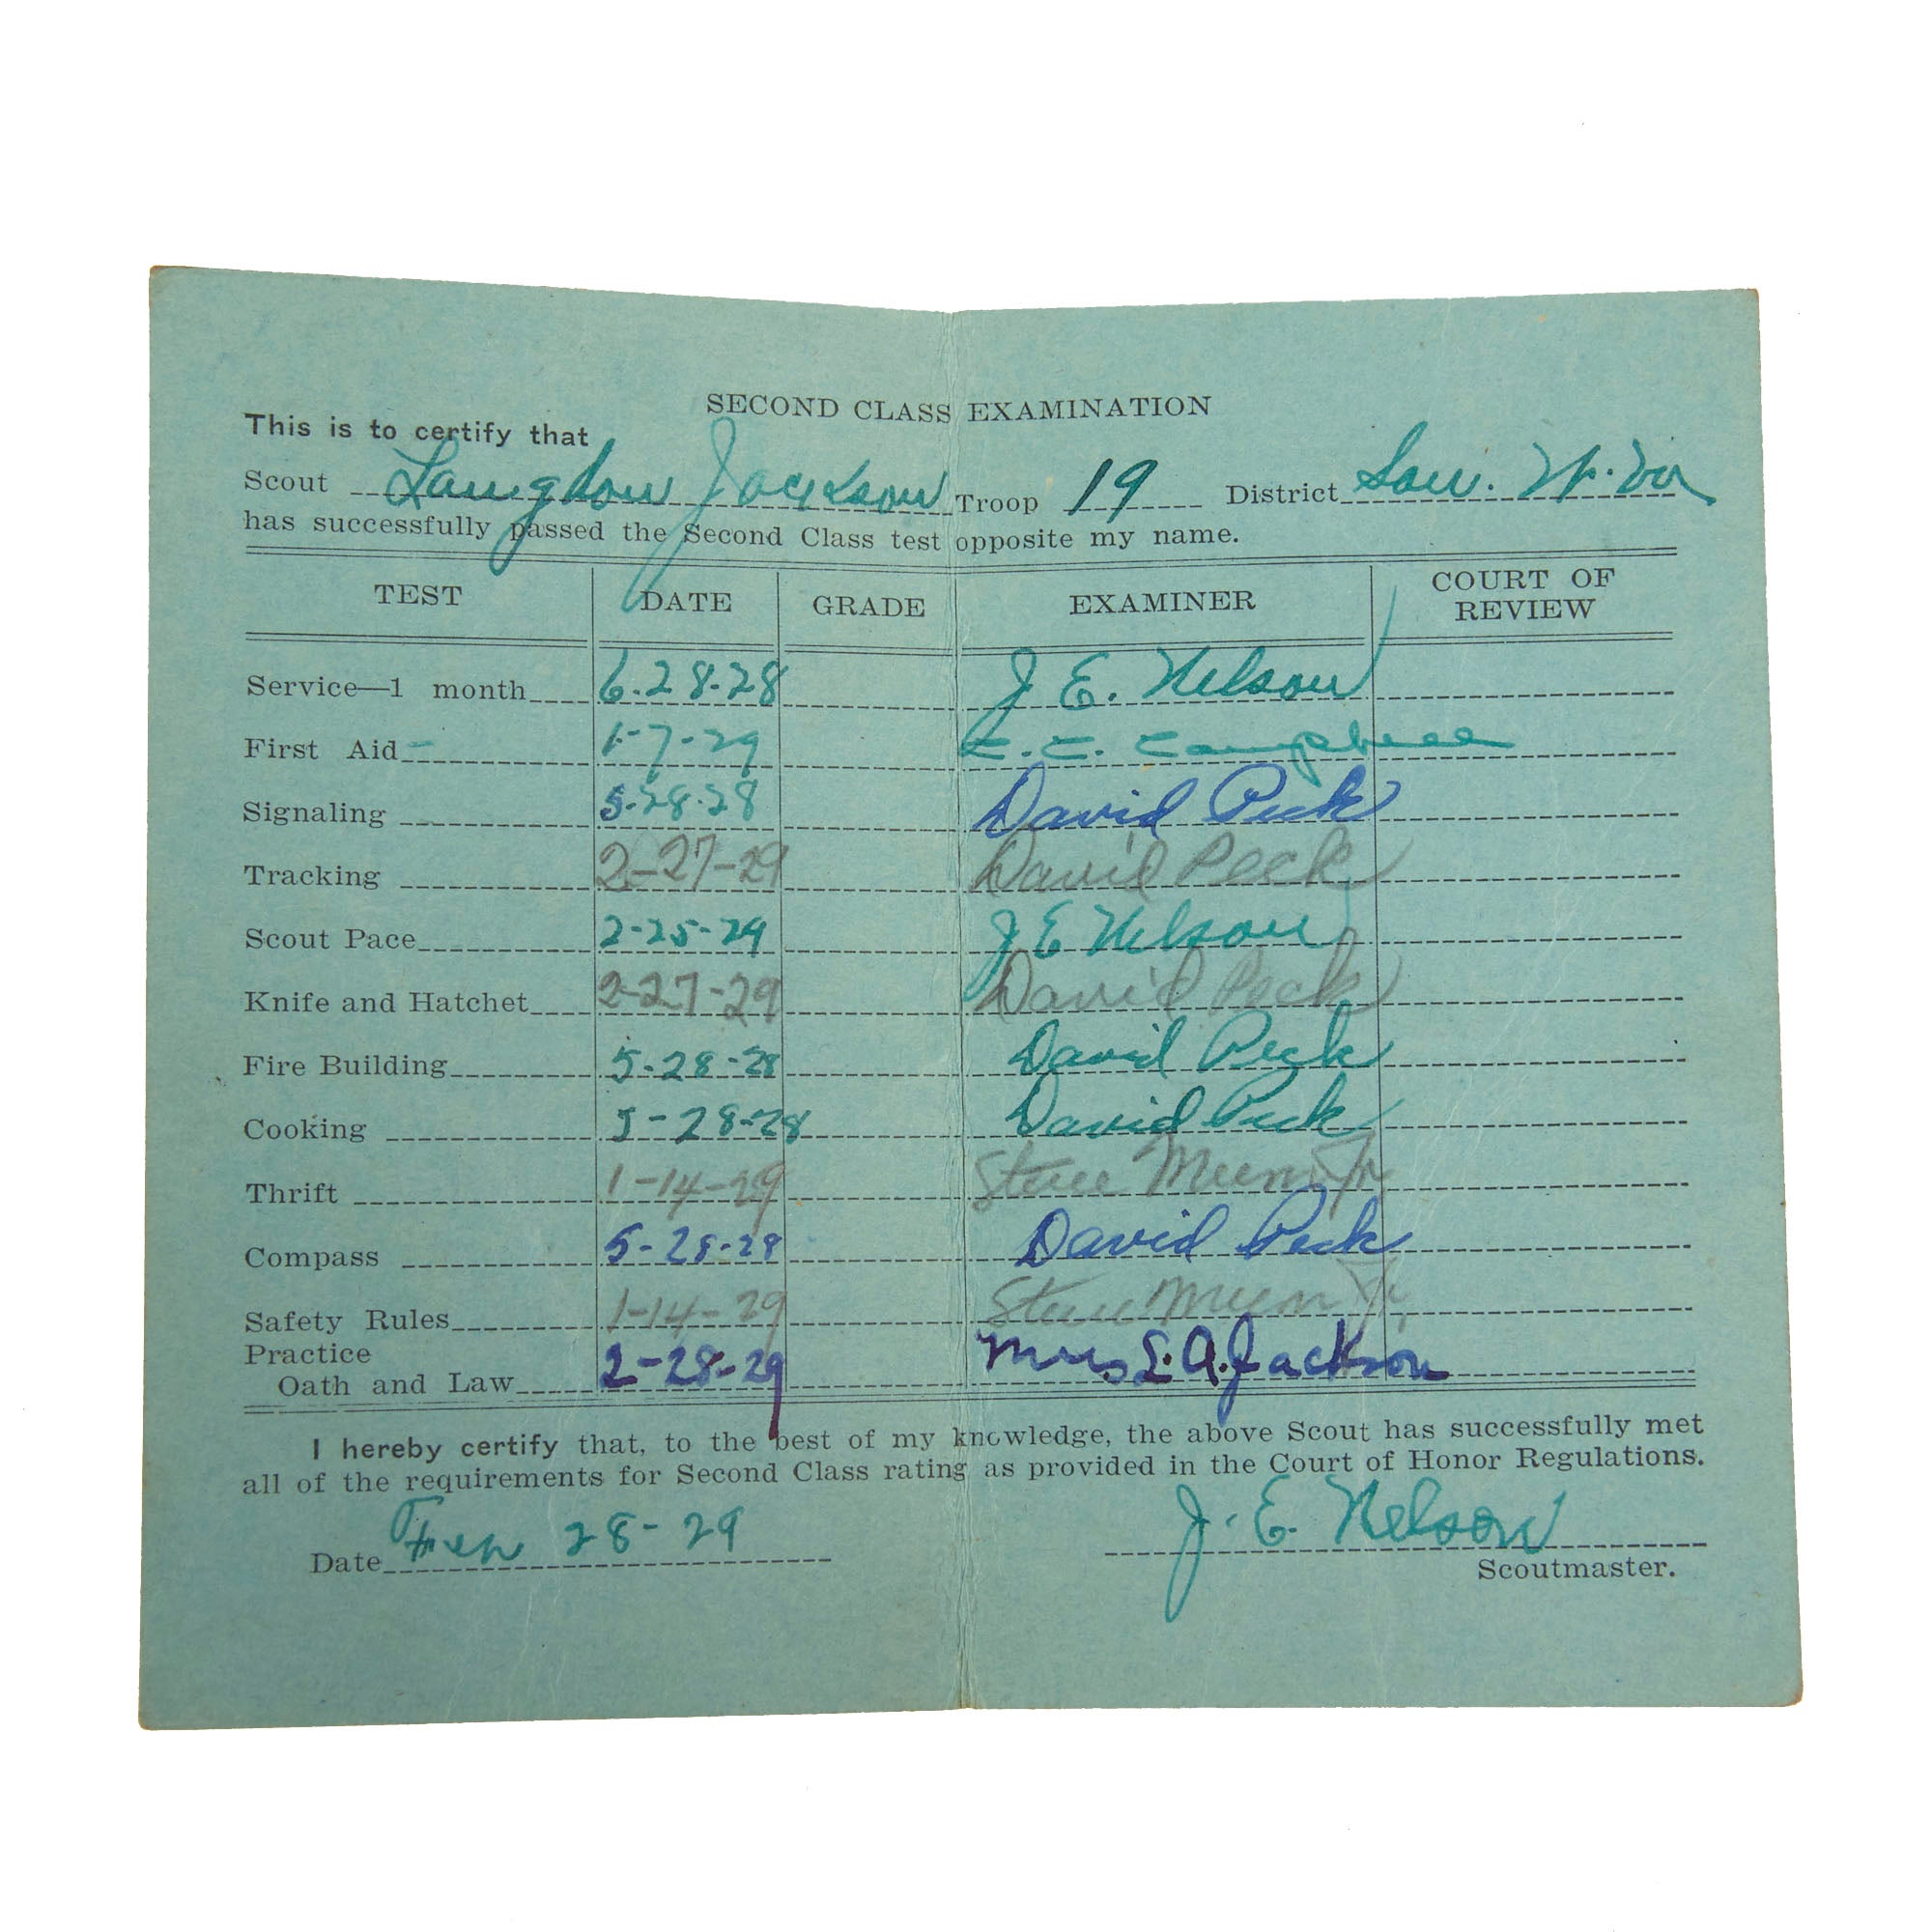 SECOND CLASS EXAMINATION
This is to certify that
Scout Langdon Jackson Troop 19 District Sou. W. Va
has successfully passed the Second Class test opposite my name.
TEST DATE GRADE EXAMINER COURT OF REVIEW
Service—1 month 6.28.28 J. E. Nelson
First Aid 1-7-29 E. E. Campbell
Signaling 5-28-28 David Peck
Tracking 2-27-29 David Peck
Scout Pace 2-25-29 J E Nelson
Knife and Hatchet 2-27-29 David Peck
Fire Building 5-28-28 David Peck
Cooking 5-28-28 David Peck
Thrift 1-14-29 Jr
Compass 5-28-28 David Peck
Safety Rules 1-14-29 Jr
Practice
Oath and Law 2-28-29 Mrs L. A. Jackson
I hereby certify that, to the best of my knowledge, the above Scout has successfully met
all of the requirements for Second Class rating as provided in the Court of Honor Regulations.
Date Feb 28-29 J. E. Nelson
Scoutmaster.